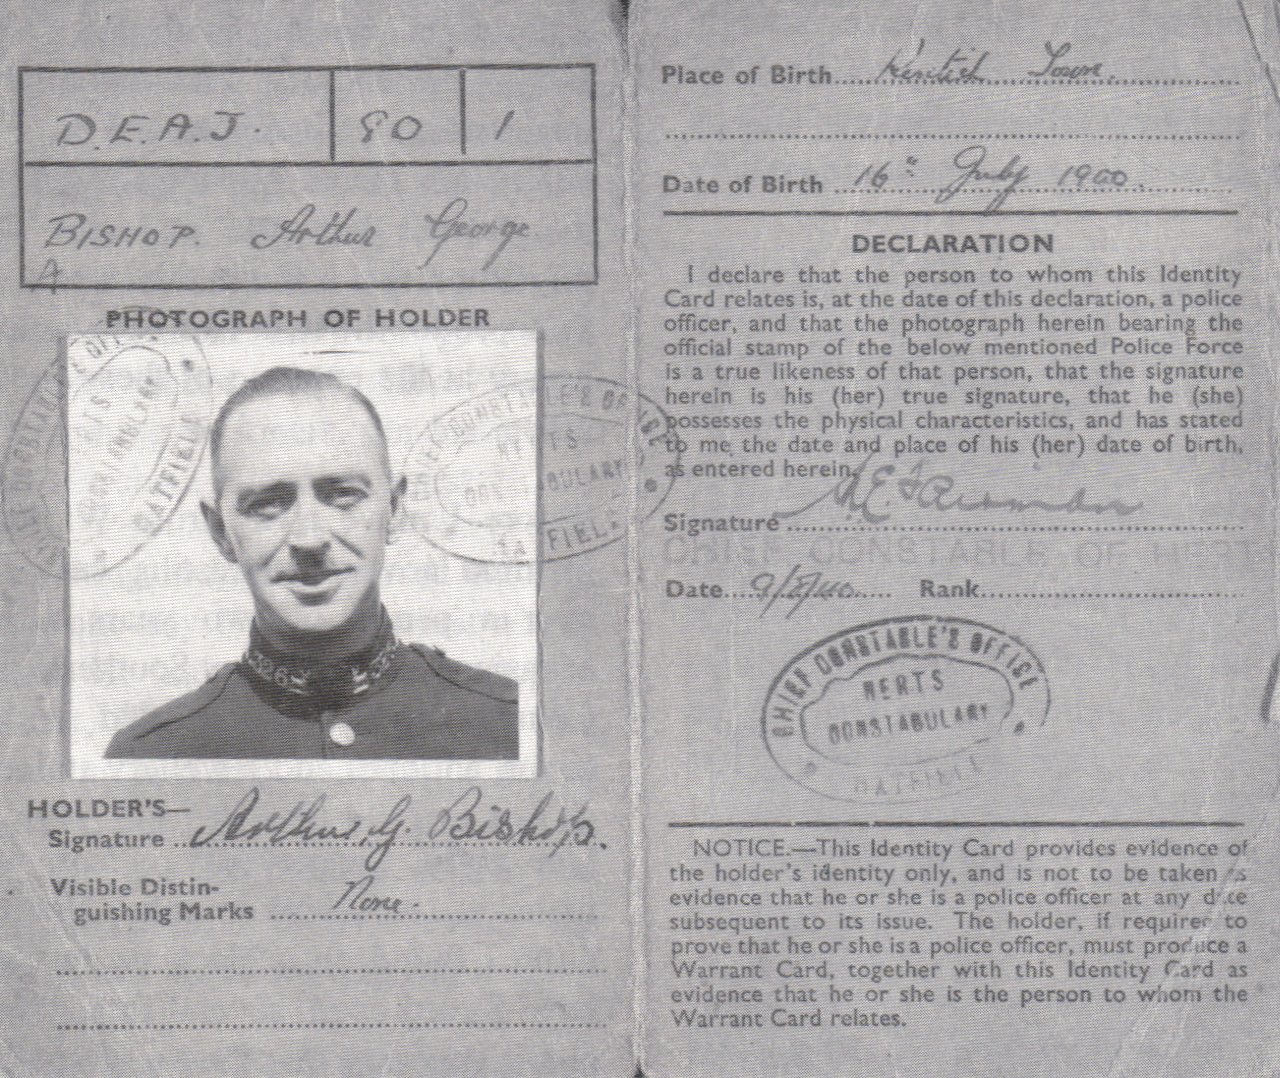 D.E.A.J. 80 1
BISHOP. Arthur George
A
PHOTOGRAPH OF HOLDER
CHIEF CONSTABLE'S OFFICE
HERTS
CONSTABULARY
HATFIELD
CHIEF CONSTABLE'S OFFICE
HERTS
CONSTABULARY
HATFIELD
126
HOLDER'S—
Signature Arthur G. Bishop.
Visible Distin-
guishing Marks None.
Place of Birth Kentish Town.
Date of Birth 16th July 1900.
DECLARATION
I declare that the person to whom this Identity
Card relates is, at the date of this declaration, a police
officer, and that the photograph herein bearing the
official stamp of the below mentioned Police Force
is a true likeness of that person, that the signature
herein is his (her) true signature, that he (she)
possesses the physical characteristics, and has stated
to me the date and place of his (her) date of birth,
as entered herein.
Signature
CHIEF CONSTABLE OF HERT
Date Rank
CHIEF CONSTABLE'S OFFICE
HERTS
CONSTABULARY
HATFIELD
NOTICE.—This Identity Card provides evidence of
the holder's identity only, and is not to be taken as
evidence that he or she is a police officer at any date
subsequent to its issue. The holder, if required to
prove that he or she is a police officer, must produce a
Warrant Card, together with this Identity Card as
evidence that he or she is the person to whom the
Warrant Card relates.